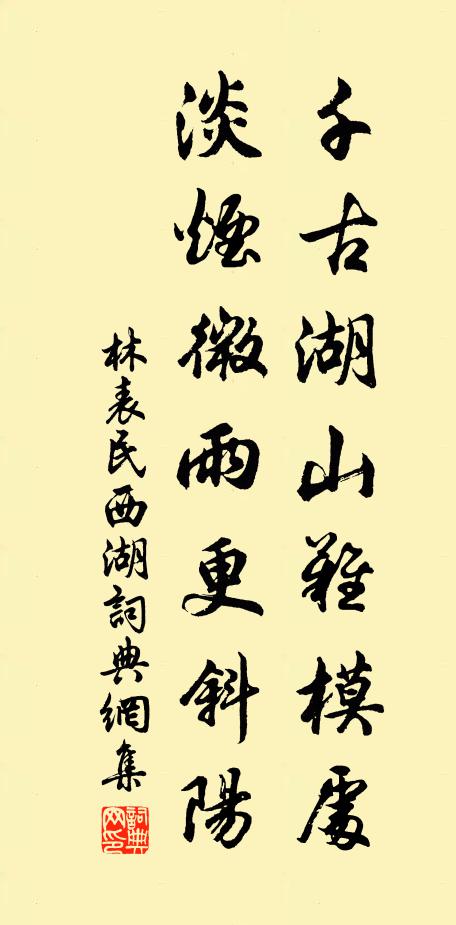 千古湖山難模處
淡煙微雨更斜陽
林表民西湖詞典網集
詞典網印